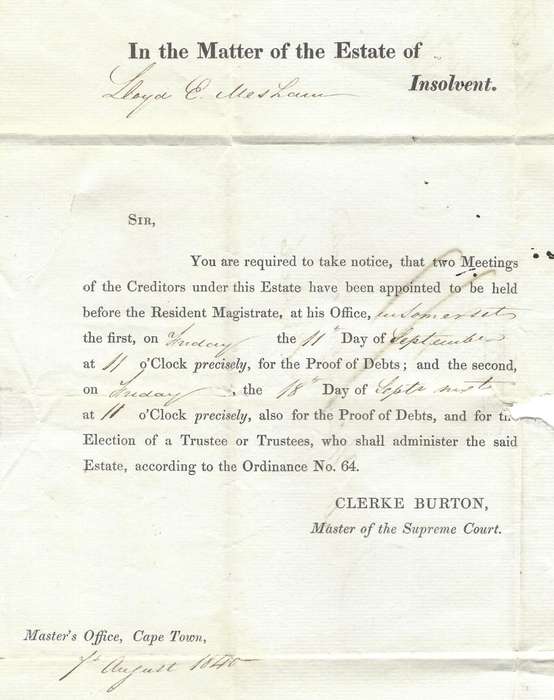 In the Matter of the Estate of
Lloyd E. Mesham Insolvent.
SIR,
You are required to take notice, that two Meetings
of the Creditors under this Estate have been appointed to be held
before the Resident Magistrate, at his Office, in Somerset
the first, on Friday the 11th Day of September
at 11 o'Clock precisely, for the Proof of Debts; and the second,
on Friday, the 18th Day of Septr next
at 11 o'Clock precisely, also for the Proof of Debts, and for the
Election of a Trustee or Trustees, who shall administer the said
Estate, according to the Ordinance No. 64.
CLERKE BURTON,
Master of the Supreme Court.
Master's Office, Cape Town,
August 1840